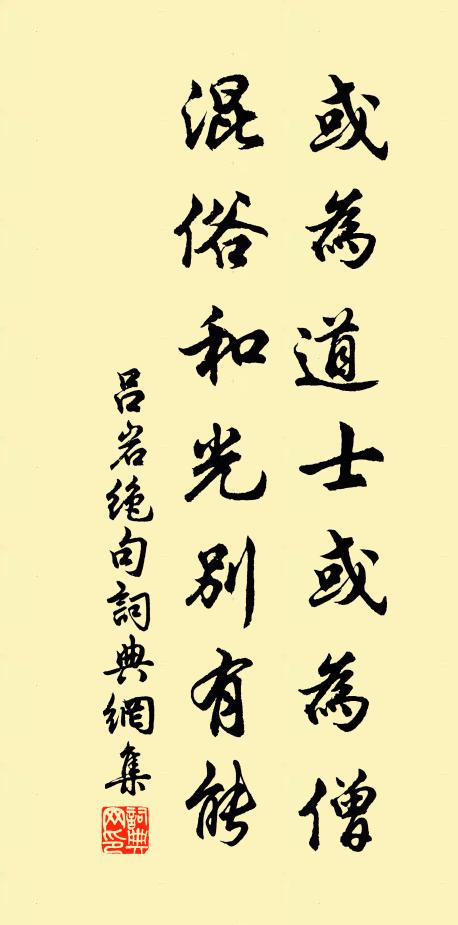 或為道士或為僧
混俗和光別有能
吕岩绝句詞典網集
詞典網印